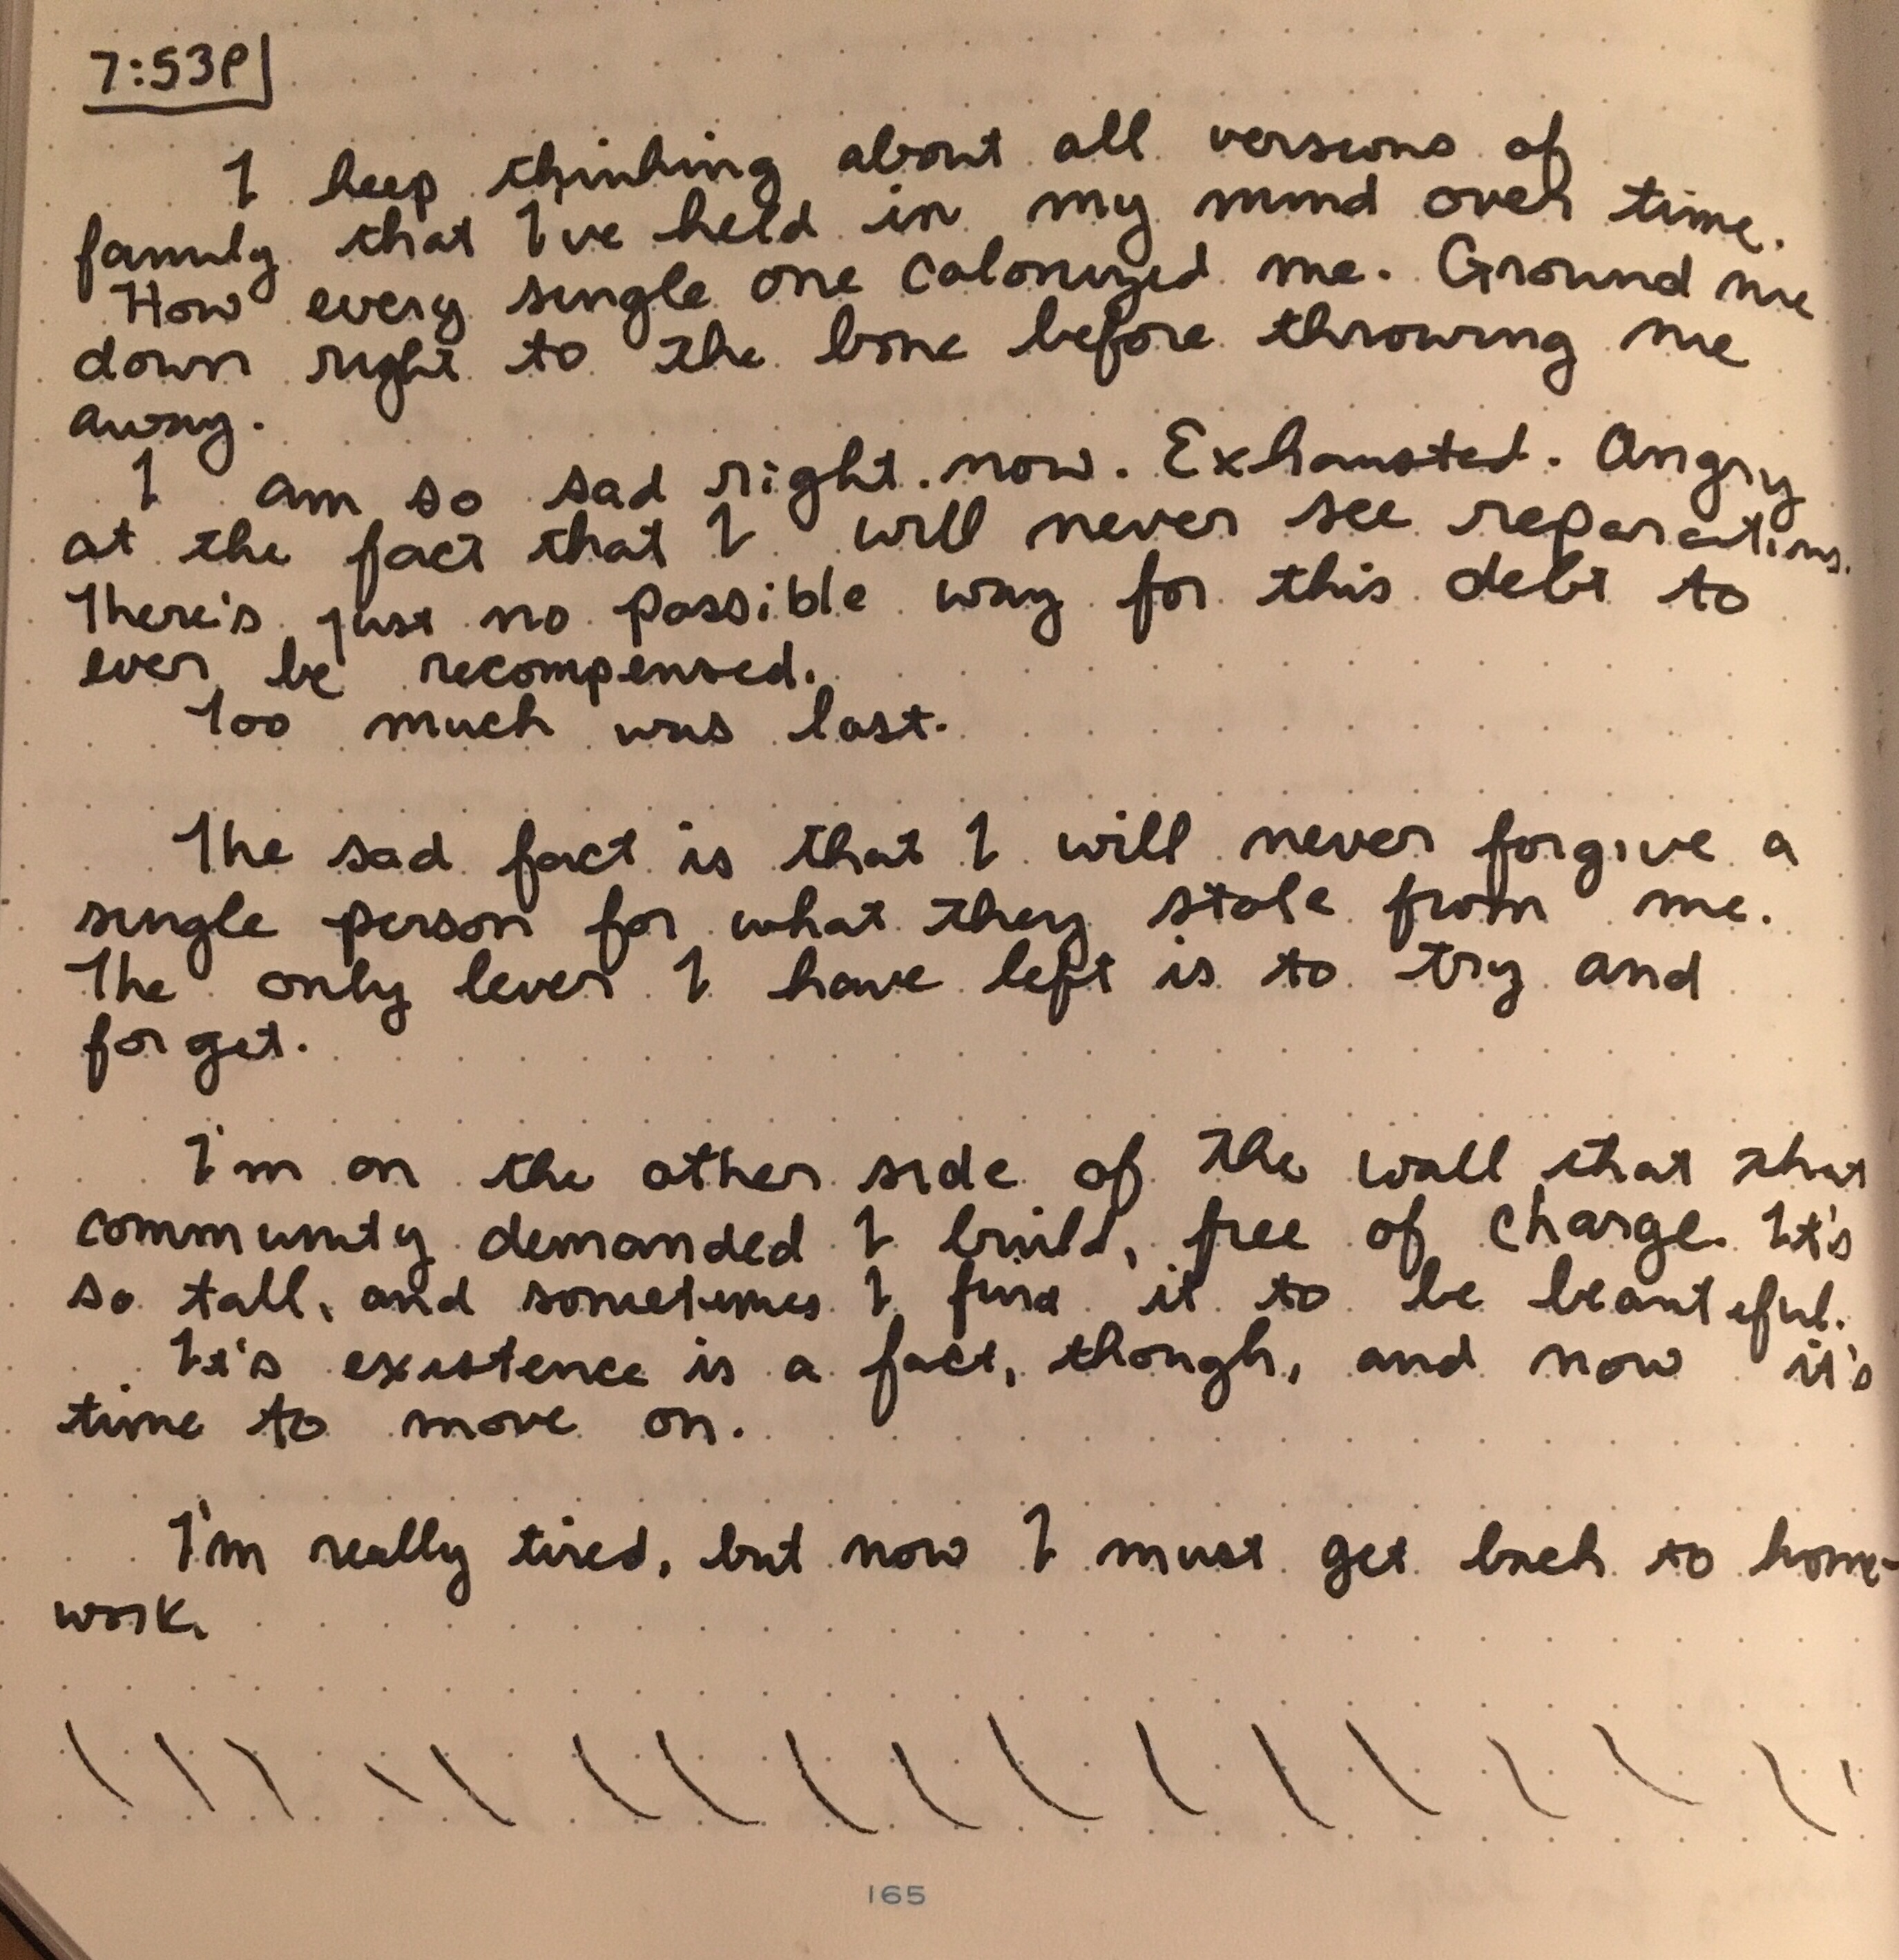 7:53P
I keep thinking about all versions of
family that I've held in my mind over time.
How every single one colonized me. Ground me
down right to the bone before throwing me
away.
I am so sad right now. Exhausted. Angry
at the fact that I will never see reparations.
There's just no possible way for this debt to
ever be recompensed.
Too much was lost.
The sad fact is that I will never forgive a
single person for what they stole from me.
The only lever I have left is to try and
forget.
I'm on the other side of the wall that that
community demanded I build, free of charge. It's
so tall, and sometimes I find it to be beautiful.
It's existence is a fact, though, and now it's
time to move on.
I'm really tired, but now I must get back to home-
work.
165